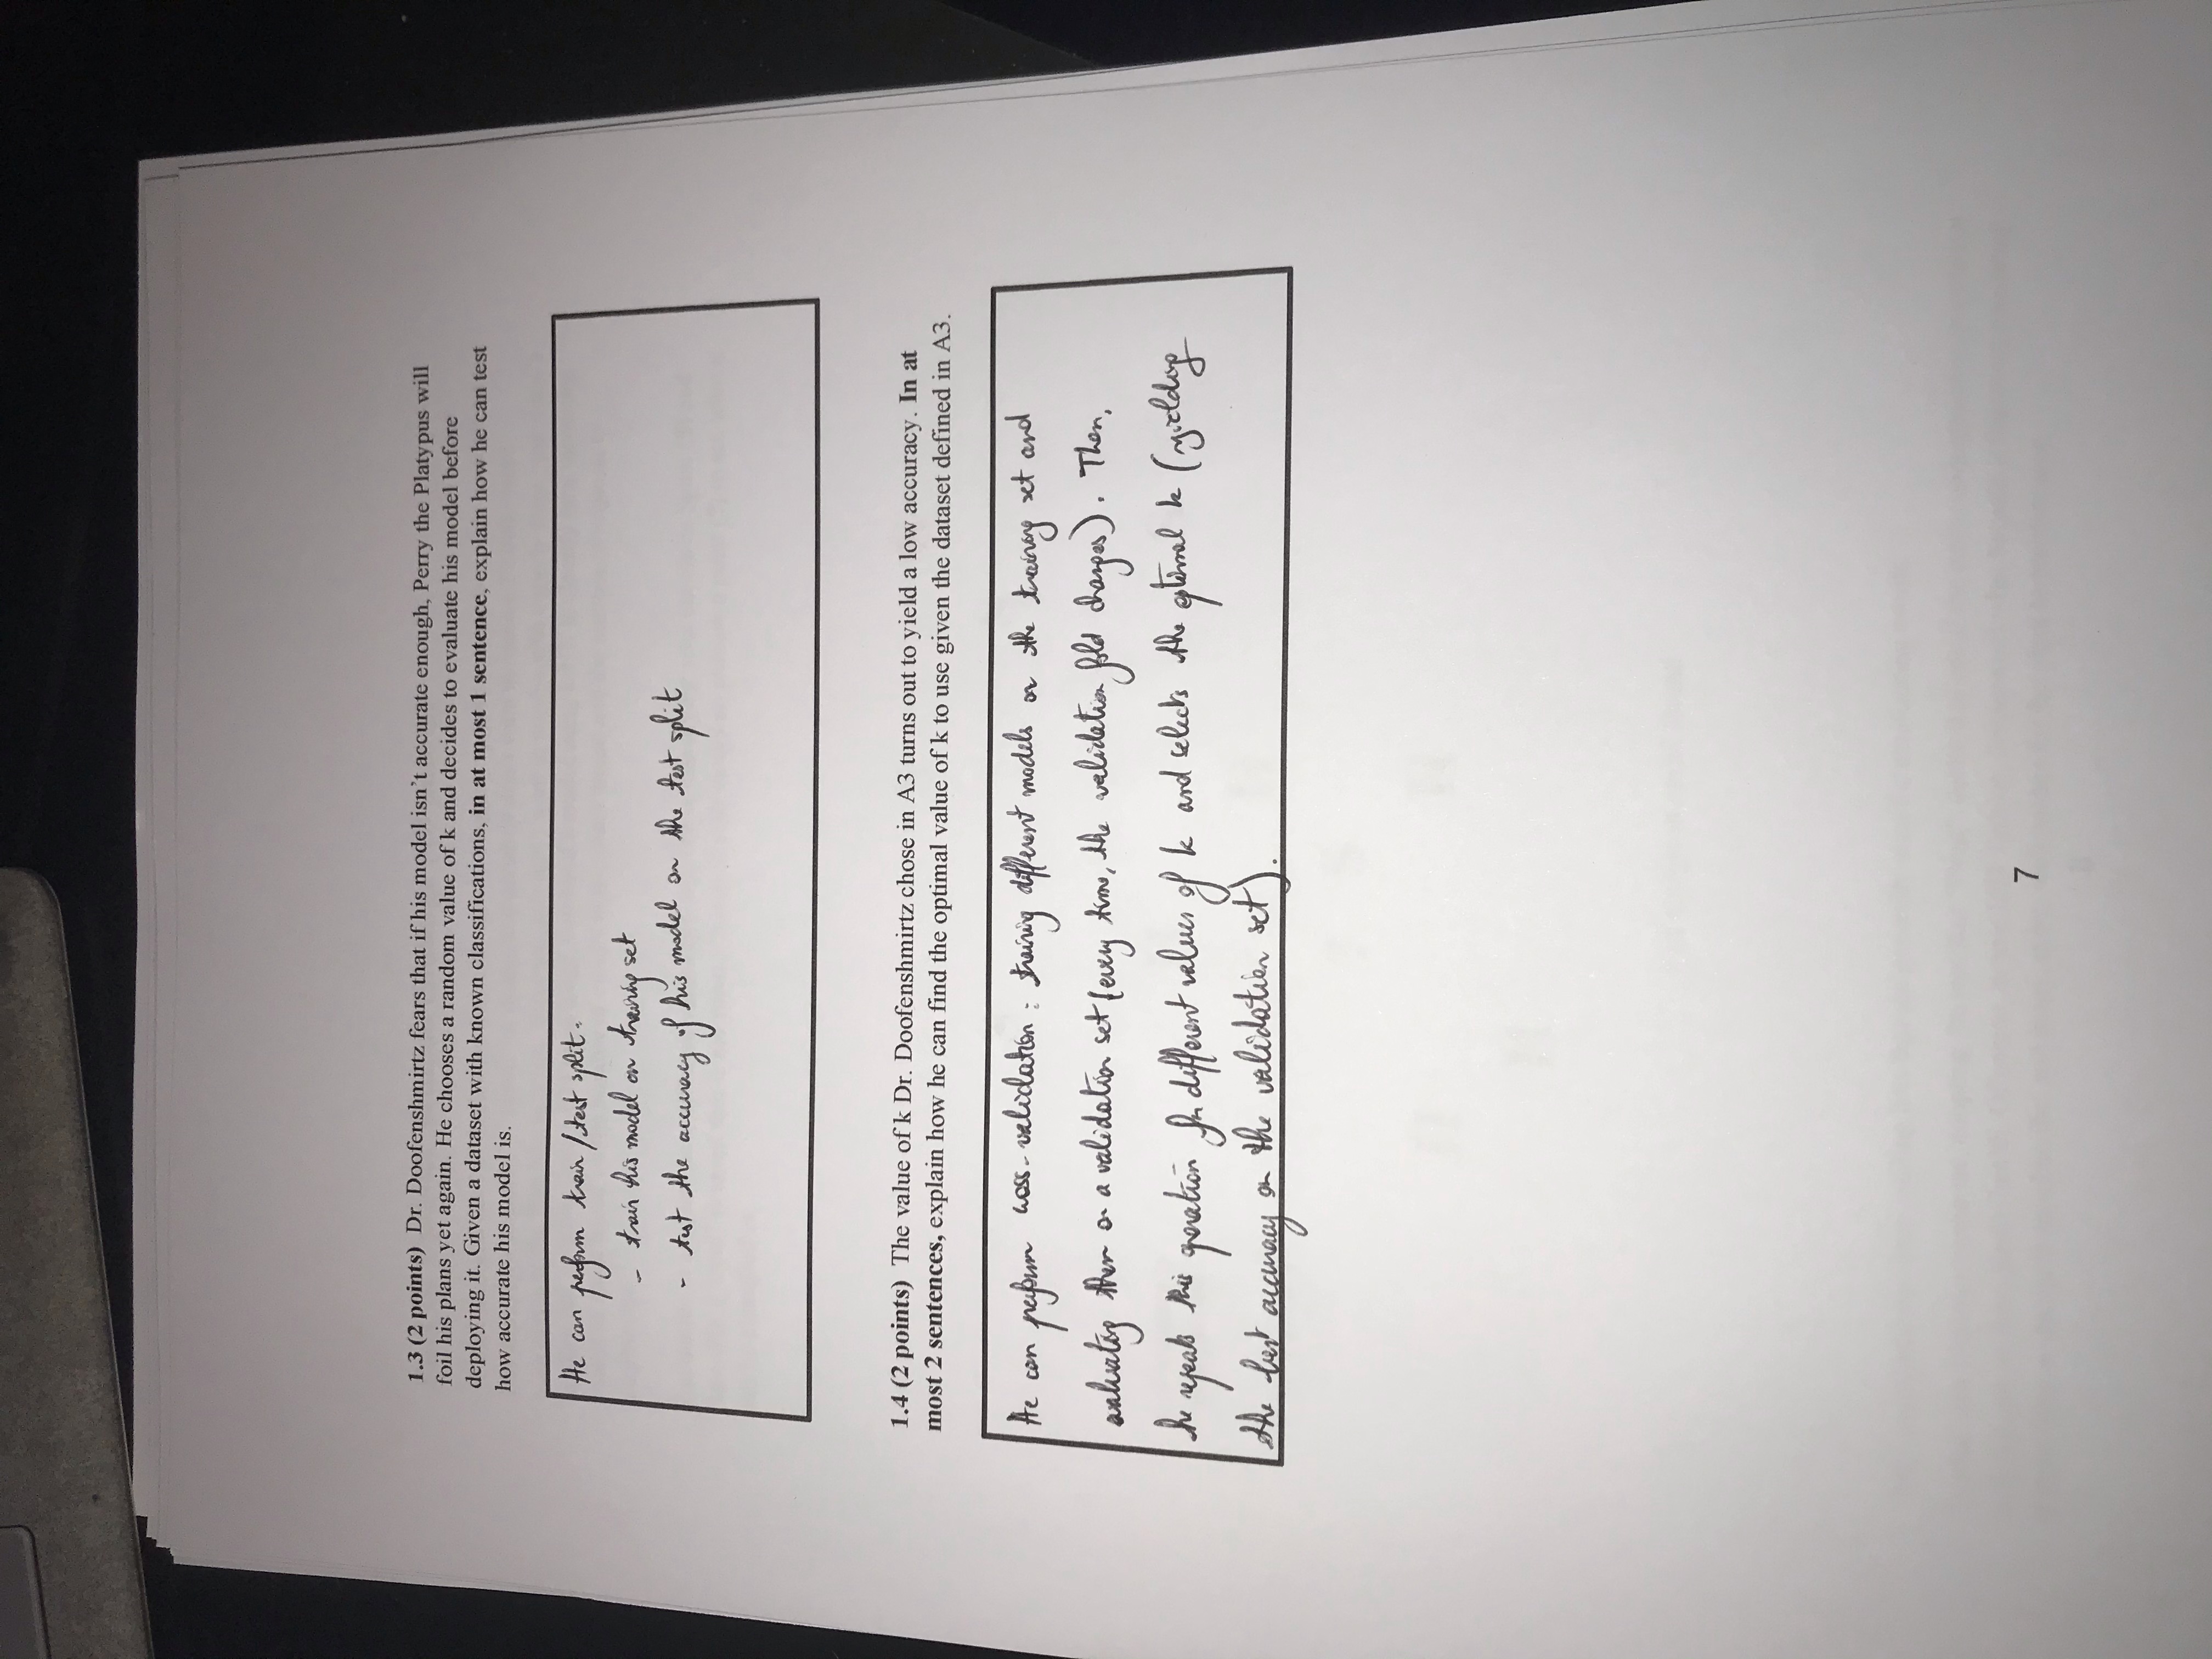 1.3 (2 points) Dr. Doofenshmirtz fears that if his model isn't accurate enough, Perry the Platypus will
foil his plans yet again. He chooses a random value of k and decides to evaluate his model before
deploying it. Given a dataset with known classifications, in at most 1 sentence, explain how he can test
how accurate his model is.
He can perform train/test split.
- train his model on training set
- test the accuracy of his model on the test split
1.4 (2 points) The value of k Dr. Doofenshmirtz chose in A3 turns out to yield a low accuracy. In at
most 2 sentences, explain how he can find the optimal value of k to use given the dataset defined in A3.
He can perform cross-validation: training different models on the training set and
evaluating them on a validation set (every time, the validation fold changes). Then,
he repeats this operation for different values of k and selects the optimal k (yielding
the best accuracy on the validation set).
7